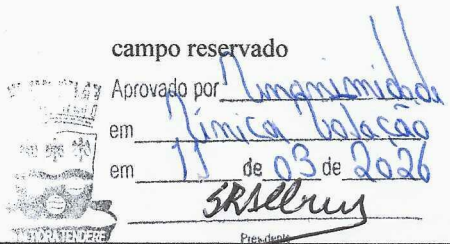 campo reservado
Aprovado por Unanimidade
em Única Votação
em 11 de 03 de 2026
Presidente